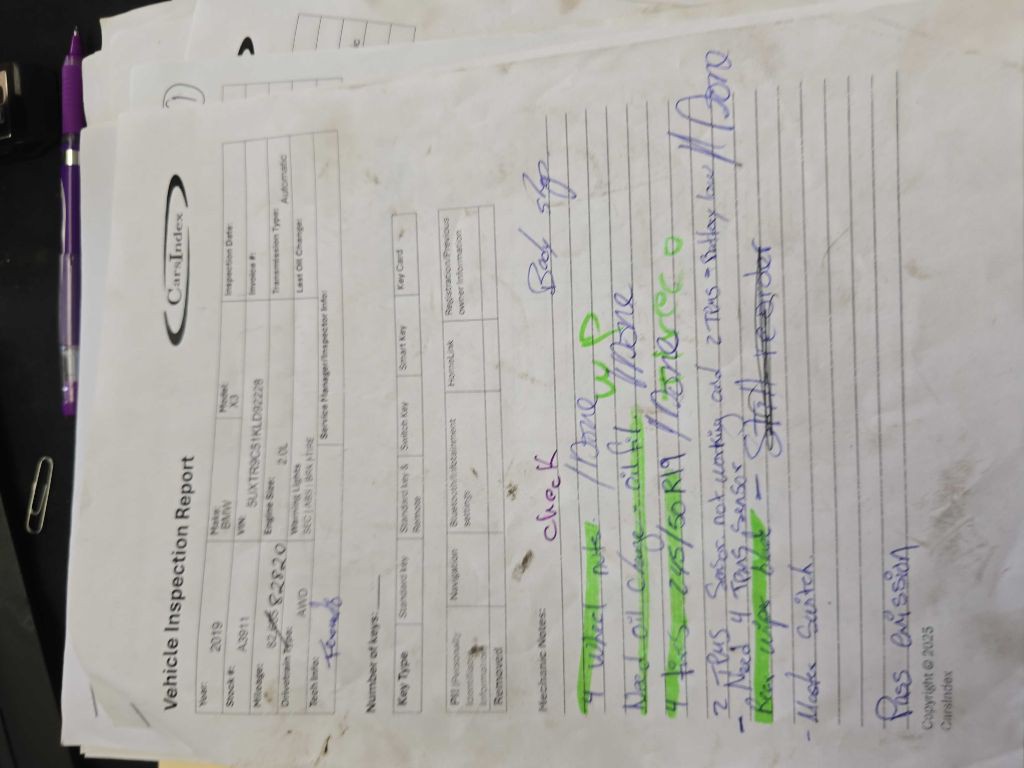 Vehicle Inspection Report
CarsIndex
Year: 2019 Make: BMW Model: X3 Inspection Date:
Stock #: A3911 VIN: 5UXTR9C51KLD92228 Invoice #:
Mileage: 82820 Engine Size: 2.0L Transmission Type: Automatic
Drivetrain Type: AWD Warning Lights Last Oil Change:
Tech Info: Service Manager/Inspector Info:
Number of Keys:
Key Type Standard key Standard key & Remote Switch Key Smart Key Key Card
PII (Personally Identifiable Information) Removed Navigation Bluetooth/Infotainment settings HomeLink Registration/Previous owner information
Mechanic Notes: check Body shop
4 wheel nuts //Done
WP
Need oil change - oil filt //Done
4 tires 245/50R19 //Done
2 TPMS Sensor not working and 2 TPMS - Battery low // Done
- Need 4 TPMS Sensor
Rear wiper - Still
- Master Switch
Pass emission
Copyright © 2023
CarsIndex